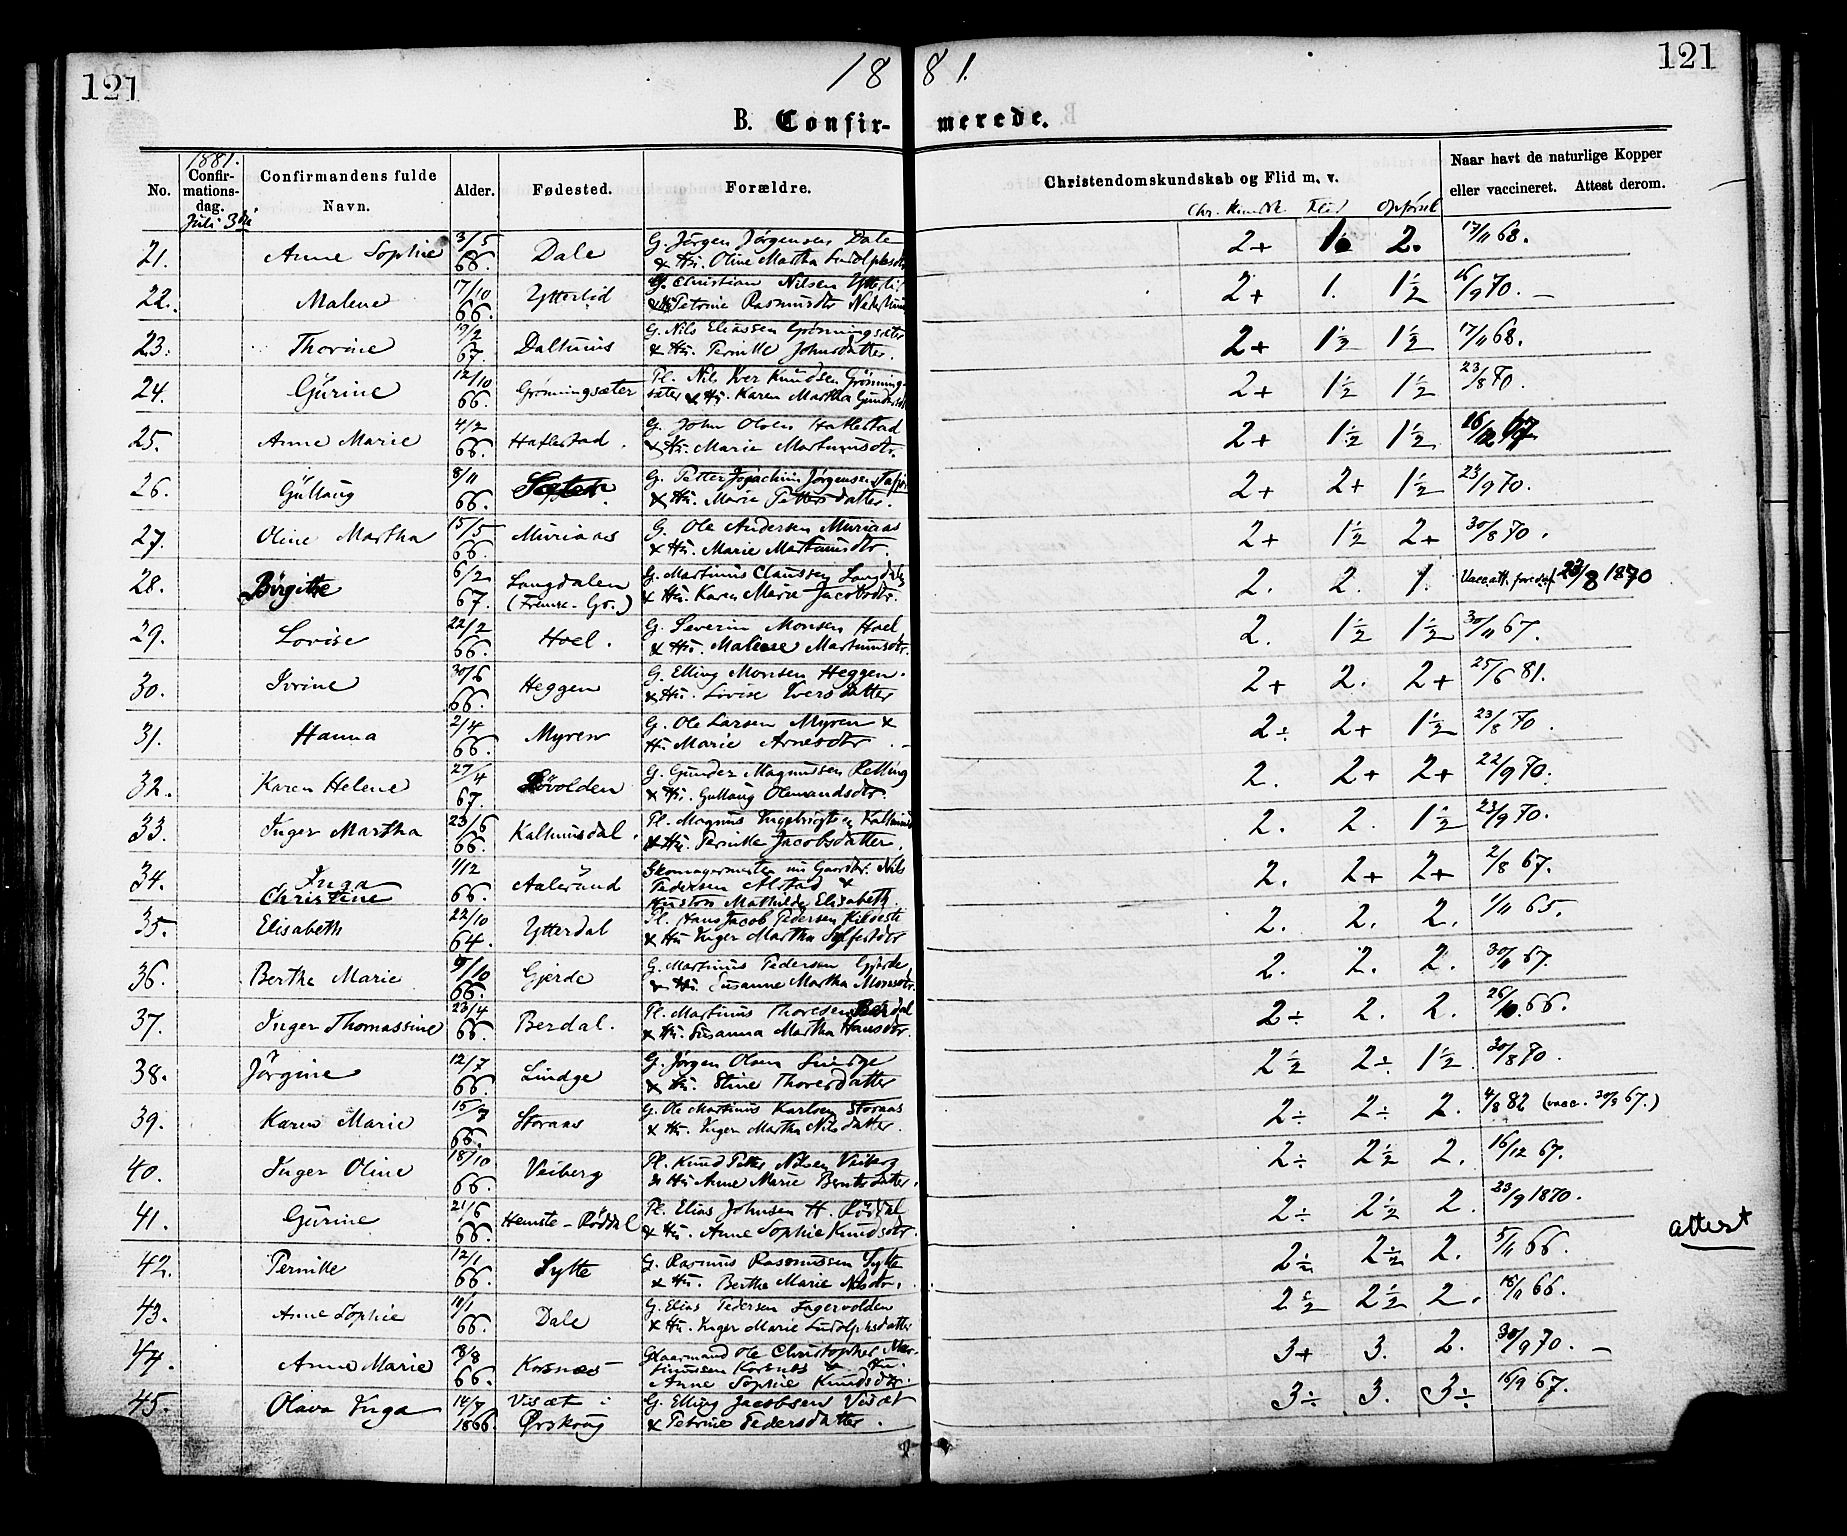 121 1881. 121
B. Confirmerede.
No. 1881. Confirmationsdag. Confirmandens fulde Navn. Alder. Fødested. Forældre. Christendomskundskab og Flid m. v. Naar havt de naturlige Kopper eller vaccineret. Attest derom.
Juli 3die Chr. Kundsk. Flid Opførsel
21. Anne Sophie 3/5 68. Dale G. Jörgen Jörgensen Dale 2+ 2. 17/11 68.
& Hu. Oline Martha
22. Malene 17/10 66. Ytterlid G. Christian Nilsen 2+ 1. 1½ 16/9 70.
Petrine Rasmusdtr
23. Thorine 67. G. Nils Eliassen Grønningsæter 2+ 1½ 1½ 17/11 68.
& Hu. Pernille Johnsdatter.
24. Gürine 12/10 66. Grønningsæter Pl. Nils Iver Knudsen Grönning- 2+ 1½ 1½ 23/8 70.
sæter & Hu. Karen Martha
25. Anne Marie 4/2 66. G. John Olsen 2+ 1½ 1½
& Hu. Marie Martinusdtr.
26. Güllaug 8/11 66. G. Petter Joachim Jörgensen 2+ 2+ 1½ 23/9 70.
& Hu. Marie Pettersdatter.
27. Oline Martha 15/5 66. Muriaas G. Ole Andersen Muriaas 2+ 1½ 2+ 30/8 70.
& Hu. Marie Martinusdtr.
28. Birgitte 6/2 67. Langdalen G. Martinus Claussen Langdalen 2. 2. 1. 23/8 1870
& Hu. Karen Marie Jacobsdtr.
29. Lovise 22/2 66. Hoel. G. Severin Monsen Hoel 2. 1½ 1½ 30/11 67.
& Hu. Malene Martinusdtr.
30. Ivrine 30/6 66. Heggen G. Elling Monsen Heggen. 2+ 2. 2+ 25/6 81.
& Hu. Lovise Iversdatter
31. Hanna 2/4 66. Myren G. Ole Larsen Myren & 2÷ 2+ 1½ 23/8 70.
H. Marie Arnesdtr
32. Karen Helene 27/4 67. Lövolden G. Gunder Magnusen Relling 2. 2+ 2+ 22/9 70.
& Hu. Gullaug Olemandsdtr.
33. Inger Martha 23/6 66. Kaltmusdal. Pl. Magnus 2. 2. 1½ 23/9 70.
& Hu. Pernille Jacobsdatter.
34. Inga Christine 1/12 66. Aalesund Skomagermester Nils 2. 2+ 2+ 2/8 67.
Pedersen Alstad &
Hustru Mathilde Elisabeth.
35. Elisabeth 22/10 64. Ytterdal Pl. Hans Jacob Pedersen 2. 2. 2. 1/11 65.
& Hu. Inger Martha Sylfestdtr
36. Berthe Marie 9/10 66. Gjerde G. Martinus Pedersen Gjerde 2. 2. 2. 30/11 67.
& Hu. Susanne Martha Monsdtr.
37. Inger Thomassine 23/4 66. Berdal. Pl. Martinus Thoresen Berdal 2÷ 2. 2. 26/10 66.
& Hu. Susanna Martha Hansdtr.
38. Jörgine 12/7 66. Lindge G. Jörgen Olsen Lindge 2½ 2÷ 1½ 30/8 70.
& Hu. Stine Thoresdatter
39. Karen Marie 15/7 66. Storaas G. Ole Martinus Karlsen Storaas 2÷ 2÷ 2. 4/8 82 (vacc. 67.)
& Hu. Inger Martha Nilsdatter.
40. Inger Oline 18/10 66. Veiberg Pl. Knud Petter Nilsen Veiberg 2÷ 2½ 2. 16/12 67.
& Hu. Anne Marie Berntsdatter.
41. Gürine 21/6 66. Hemste-Röddal Pl. Elias Johnsen H. Röddal 2÷ 2½ 2. 23/9 1870. attest
& Hu. Anne Sophie Knudsdtr.
42. Pernille 12/1 66. Sylte G. Rasmus Rasmussen Sylte 2½ 2½ 2. 5/11 66.
& Hu. Berthe Marie Nilsdtr.
43. Anne Sophie 66. Dale G. Elias Pedersen Fagervolden 2½ 2½ 2. 16/11 66.
& Hu. Inger Marie Ludolphsdatter
44. Anne Marie 66. Korsnæs Gaarmand Ole Christopher Mar- 3+ 3. 2. 30/9 70.
tinussen Korsnæs & Hu.
Anne Sophie Knudsdtr.
45. Olava Inga 14/7 1866. Visæt i Ørskoug G. Elling Jacobsen Visæt 3÷ 3. 3÷ 16/9 67.
& Petrine Pedersdatter.